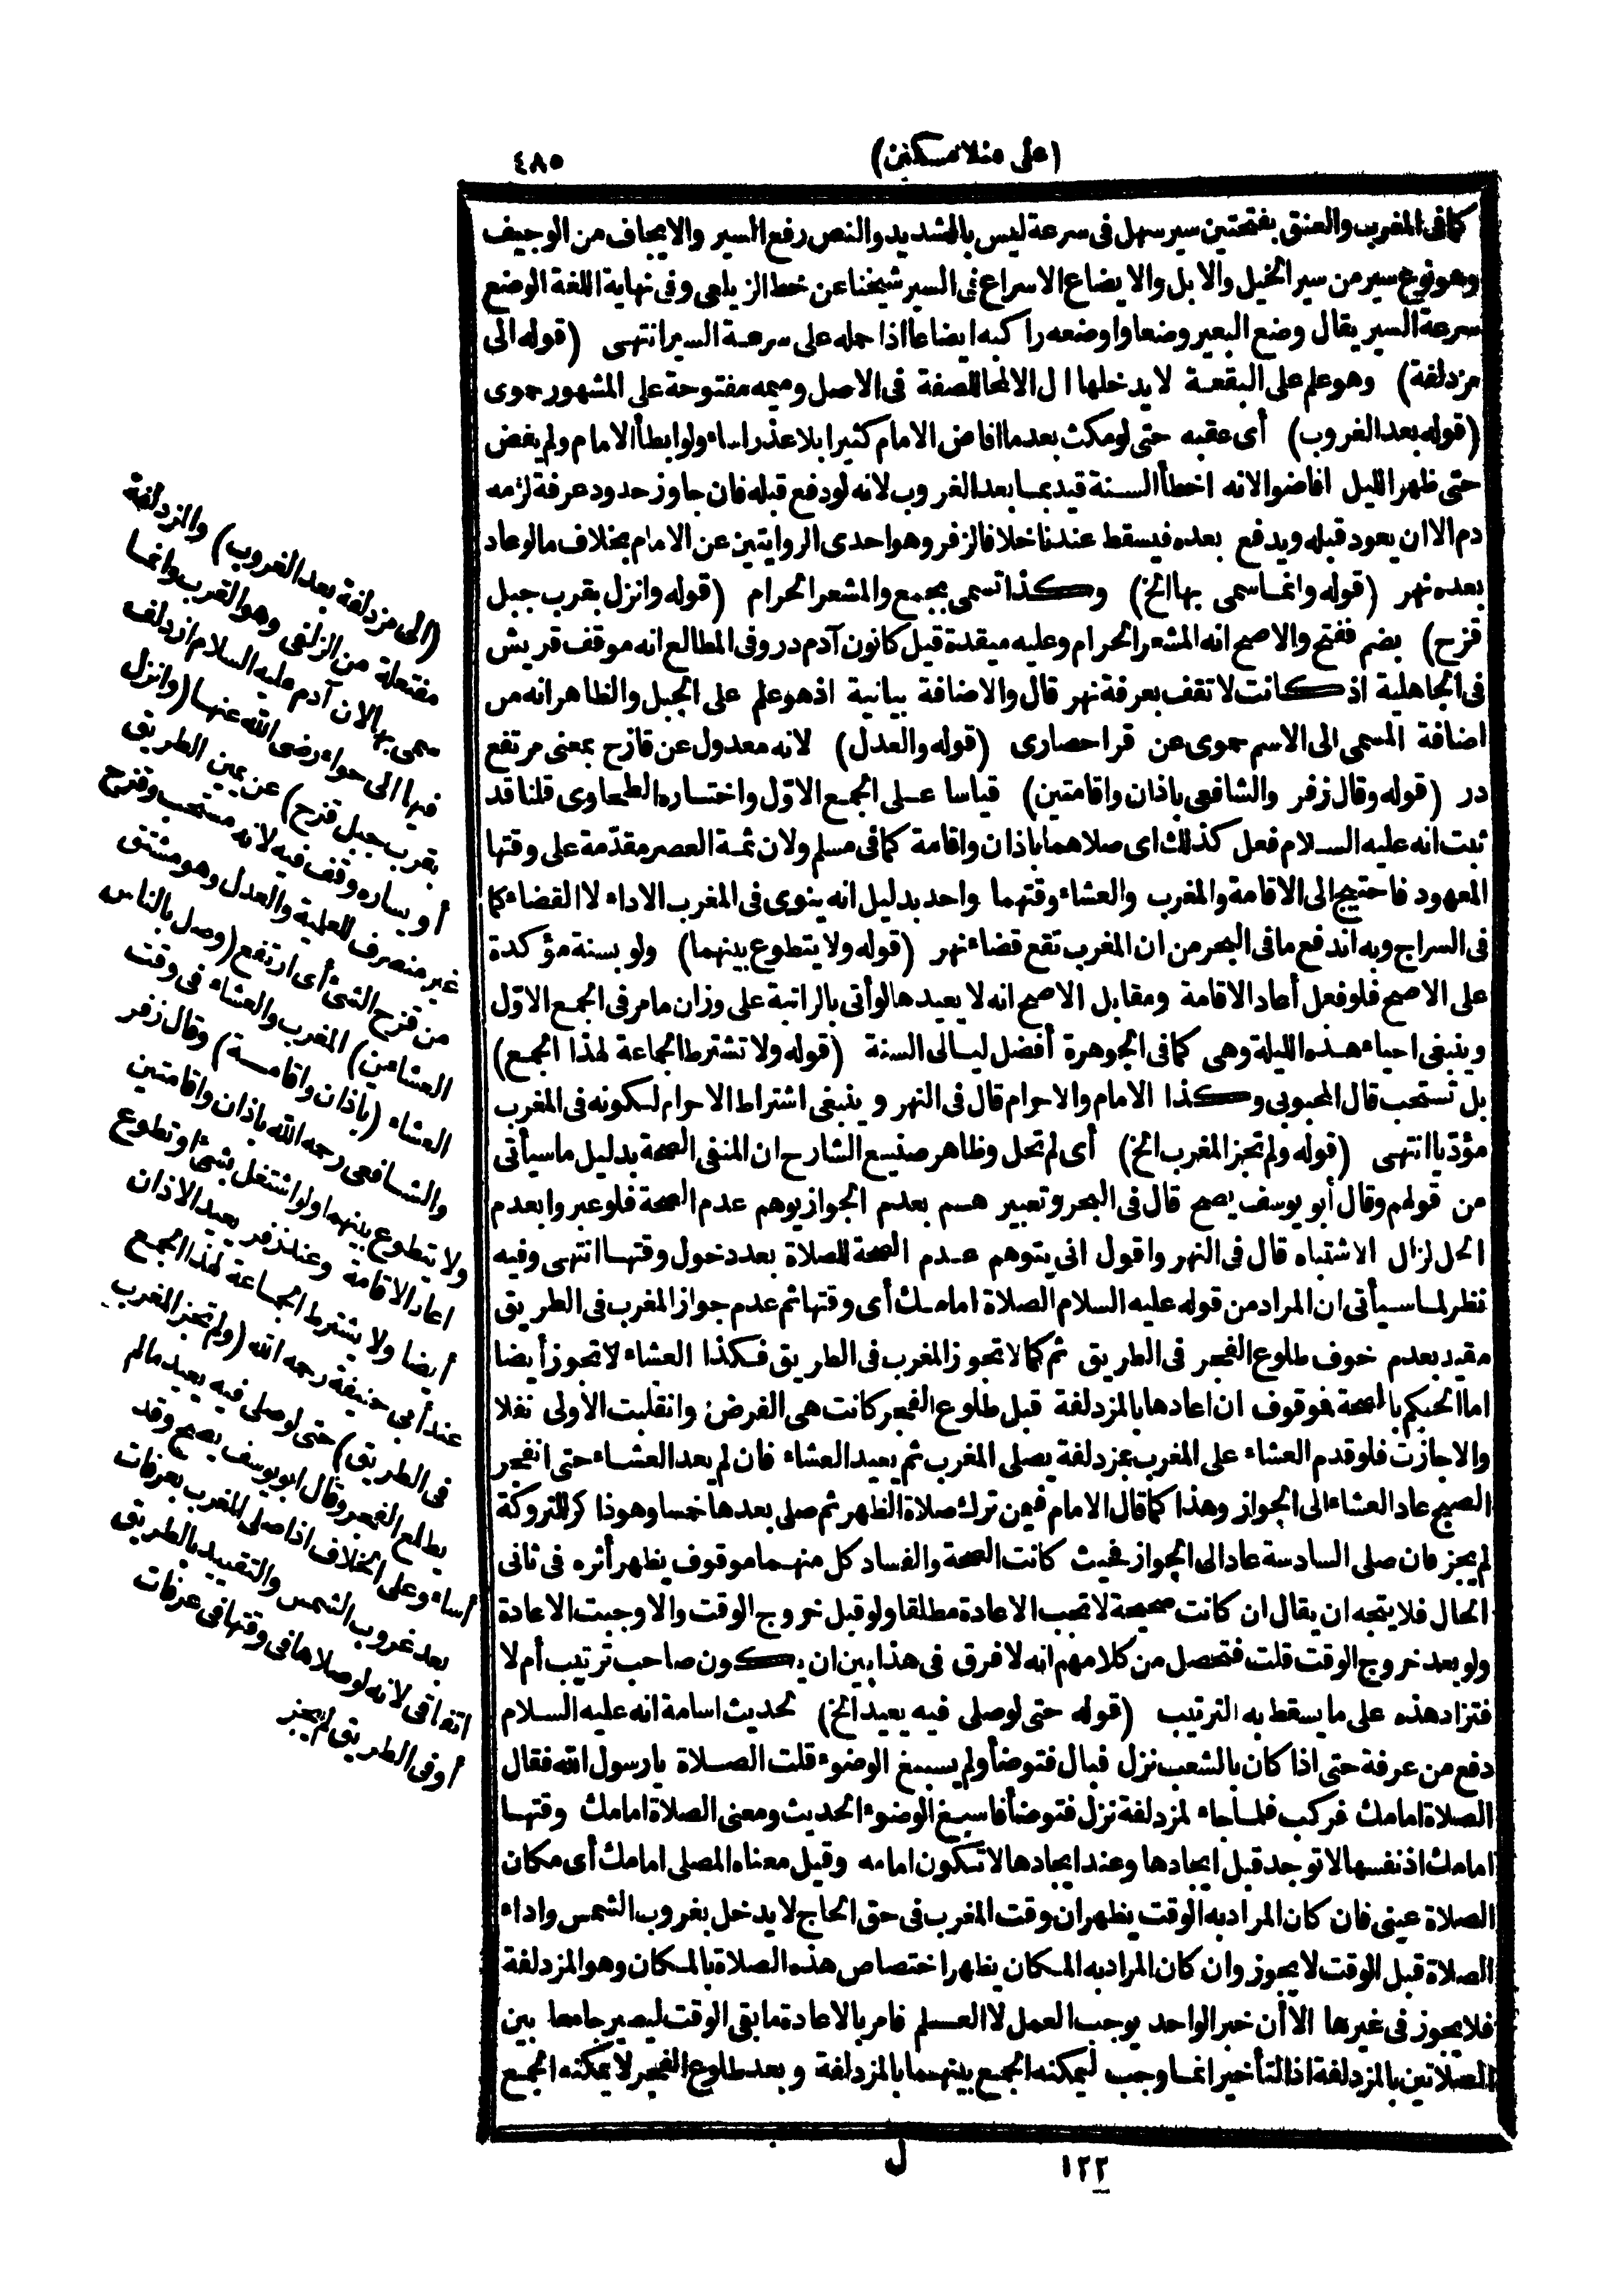 (على منلا مسكين)
٤٨٥
كما فى المغرب والعنق بفتحتين سير سهل فى سرعة ليس بالشديد والنص رفع السير والايجاف من الوجيف
وهو نوع سير من سير الخيل والابل والايضاع الاسراع فى السير شيخنا عن خط الزيلعى وفى نهاية اللغة الوضع
سرعة السير يقال وضع البعير وضعا واوضعه راكبه ايضاعا اذا حمله على سرعة السير انتهى (قوله الى
مزدلفة) وهو علم على البقعة لا يدخلها ال الا لمحا للصفة فى الاصل وميمه مفتوحة على المشهور حموى
(قوله بعد الغروب) أى عقبه حتى لو مكث بعد ما افاض الامام كثيرا بلا عذر اساء ولو ابطأ الامام ولم يفض
حتى ظهر الليل افاضوا لانه اخطأ السنة قيد بما بعد الغروب لانه لو دفع قبله فان جاوز حدود عرفة لزمه
دم الا ان يعود قبله ويدفع بعده فيسقط عندنا خلافا لزفر وهو احدى الروايتين عن الامام بخلاف ما لو عاد
بعده نهر (قوله وانما سمى بها الخ) وكذا تسمى بجمع والمشعر الحرام (قوله وانزل بقرب جبل
قزح) بضم ففتح والاصح انه المشعر الحرام وعليه ميقدة قيل كانون آدم در وفى المطالع انه موقف قريش
فى الجاهلية اذ كانت لا تقف بعرفة نهر قال والاضافة بيانية اذ هو علم على الجبل والظاهر انه من
اضافة المسمى الى الاسم حموى عن قرا حصارى (قوله والعدل) لانه معدول عن قازح بمعنى مرتفع
در (قوله وقال زفر والشافعى باذان واقامتين) قياسا على الجمع الاوّل واختاره الطحاوى قلنا قد
ثبت انه عليه السلام فعل كذلك اى صلاهما باذان واقامة كما فى مسلم ولان ثمة العصر مقدّمة على وقتها
المعهود فاحتيج الى الاقامة والمغرب والعشاء وقتهما واحد بدليل انه ينوى فى المغرب الاداء لا القضاء كما
فى السراج وبه اندفع ما فى البحر من ان المغرب تقع قضاء نهر (قوله ولا يتطوع بينهما) ولو بسنة مؤكدة
على الاصح فلو فعل أعاد الاقامة ومقابل الاصح انه لا يعيدها لو أتى بالراتبة على وزان ما مر فى الجمع الاوّل
وينبغى احياء هذه الليلة وهى كما فى الجوهرة أفضل ليالى السنة (قوله ولا تشترط الجماعة لهذا الجمع)
بل تستحب قال المحبوبى وكذا الامام والاحرام قال فى النهر وينبغى اشتراط الاحرام لكونه فى المغرب
مؤدّيا انتهى (قوله ولم تجز المغرب الخ) أى لم تحل وظاهر صنيع الشارح ان المنفى الصحة بدليل ما سيأتى
من قولهم وقال أبو يوسف يصح قال فى البحر وتعبير هم بعدم الجواز يوهم عدم الصحة فلو عبروا بعدم
الحل لزال الاشتباه قال فى النهر واقول انى يتوهم عدم الصحة للصلاة بعد دخول وقتها انتهى وفيه
نظر لما سيأتى ان المراد من قوله عليه السلام الصلاة امامك أى وقتها ثم عدم جواز المغرب فى الطريق
مقيد بعدم خوف طلوع الفجر فى الطريق ثم كما لا تجوز المغرب فى الطريق فكذا العشاء لا تجوز أيضا
اما الحكم بالصحة فموقوف ان اعادها بالمزدلفة قبل طلوع الفجر كانت هى الفرض وانقلبت الاولى نفلا
والا جازت فلو قدم العشاء على المغرب بمزدلفة يصلى المغرب ثم يعيد العشاء فان لم يعد العشاء حتى انفجر
الصبح عاد العشاء الى الجواز وهذا كما قال الامام فيمن ترك صلاة الظهر ثم صلى بعدها خمسا وهو ذاكر للتروكة
لم يجز فان صلى السادسة عاد الى الجواز فحيث كانت الصحة والفساد كل منهما موقوف يظهر أثره فى ثانى
الحال فلا يتجه ان يقال ان كانت صحيحة لا تجب الاعادة مطلقا ولو قبل خروج الوقت والا وجبت الاعادة
ولو بعد خروج الوقت قلت فتحصل من كلامهم انه لا فرق فى هذا بين ان يكون صاحب ترتيب أم لا
فتزاد هذه على ما يسقط به الترتيب (قوله حتى لو صلى فيه يعيد الخ) لحديث اسامة انه عليه السلام
دفع من عرفة حتى اذا كان بالشعب نزل فبال فتوضأ ولم يسبغ الوضوء قلت الصلاة يا رسول الله فقال
الصلاة امامك فركب فلما جاء لمزدلفة نزل فتوضأ فاسبغ الوضوء الحديث ومعنى الصلاة امامك وقتها
امامك اذ نفسها لا توجد قبل ايجادها وعند ايجادها لا تكون امامه وقيل معناه المصلى امامك أى مكان
الصلاة عينى فان كان المراد به الوقت يظهر ان وقت المغرب فى حق الحاج لا يدخل بغروب الشمس واداء
الصلاة قبل الوقت لا يجوز وان كان المراد به المكان يظهر اختصاص هذه الصلاة بالمكان وهو المزدلفة
فلا يجوز فى غيرها الا أن خبر الواحد يوجب العمل لا العلم فامر بالاعادة ما بقى الوقت ليصير جامعا بين
الصلاتين بالمزدلفة اذ التأخير انما وجب ليمكنه الجمع بينهما بالمزدلفة وبعد طلوع الفجر لا يمكنه الجمع
(الى مزدلفة بعد الغروب) والمزدلفة
مفتعلة من الزلفى وهو القرب وانما
سمى بها لان آدم عليه السلام ازدلف
فيها الى حواء رضى الله عنها (وانزل
بقرب جبل قزح) عن يمين الطريق
أو يساره وقف فيه لانه مستحب وقزح
غير منصرف للعلمية والعدل وهو مشتق
من قزح الشئ أى ارتفع (وصل بالناس
العشاءين) المغرب والعشاء فى وقت
العشاء (باذان واقامة) وقال زفر
والشافعى رحمه الله باذان واقامتين
ولا يتطوع بينهما ولو اشتغل بشئ أو تطوع
اعاد الاقامة وعند زفر يعيد الاذان
أيضا ولا يشترط الجماعة لهذا الجمع
عند أبى حنيفة رحمه الله (ولم تجز المغرب
فى الطريق) حتى لو صلى فيه يعيد مالم
يطلع الفجر وقال ابو يوسف يصح وقد
أساء وعلى الخلاف اذا صلى المغرب بعرفات
بعد غروب الشمس والتقييد بالطريق
اتفاقى لانه لو صلاها فى وقتها فى عرفات
أو فى الطريق لم يجز
ل
١٢٢